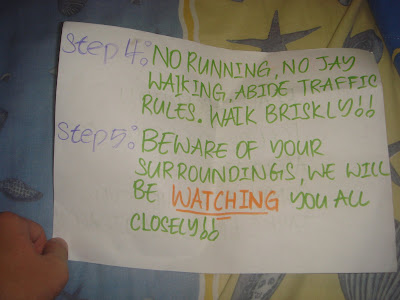 Step 4: NO RUNNING, NO JAY
WALKING. ABIDE TRAFFIC
RULES. WALK BRISKLY!!
Step 5: BEWARE OF YOUR
SURROUNDINGS, WE WILL
BE WATCHING YOU ALL
CLOSELY!!